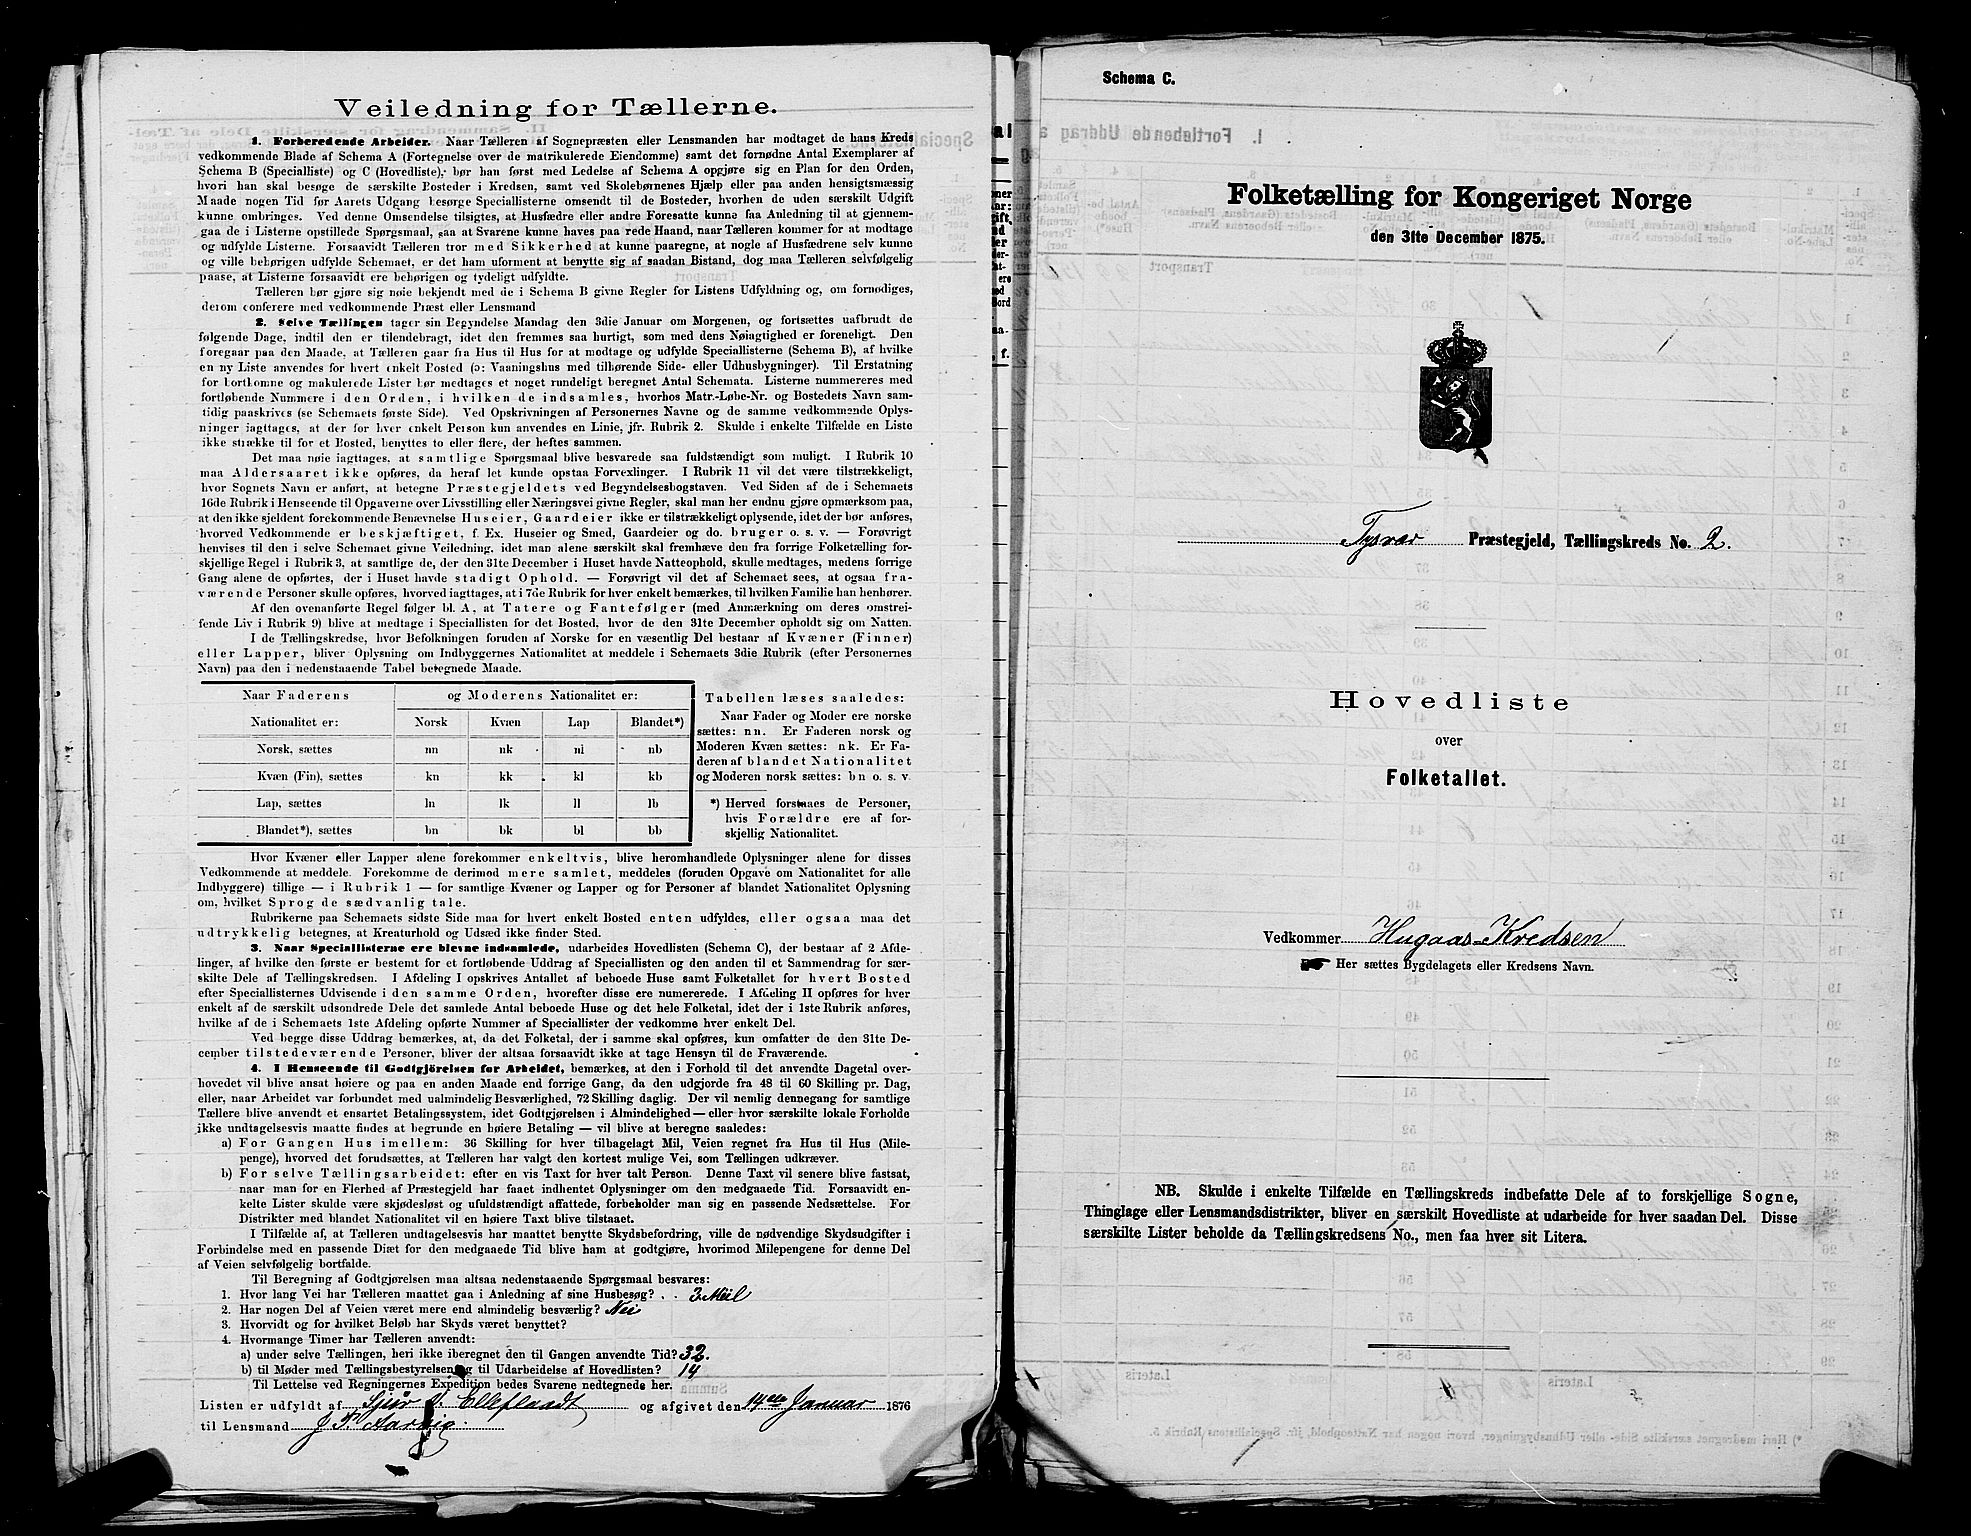 Veiledning for Tællerne.
1. Forberedende Arbeider. Naar Tælleren af Sognepræsten eller Lensmanden har modtaget de hans Kreds
vedkommende Blade af Schema A (Fortegnelse over de matrikulerede Eiendomme) samt det fornødne Antal Exemplarer af
Schema B (Specialliste) og C (Hovedliste), bør han først med Ledelse af Schema A opgjøre sig en Plan for den Orden,
hvori han skal besøge de særskilte Bosteder i Kredsen, samt ved Skolebørnenes Hjælp eller paa anden hensigtsmæssig
Maade nogen Tid før Aarets Udgang besørge Speciallisterne omsendt til de Bosteder, hvorhen de uden særskilt Udgift
kunne ombringes. Ved denne Omsendelse tilsigtes, at Husfædre eller andre Foresatte kunne faa Anledning til at gjennem-
gaa de i Listerne opstillede Spørgsmaal, saa at Svarene kunne haves paa rede Haand, naar Tælleren kommer for at modtage
og udfylde Listerne. Forsaavidt Tælleren tror med Sikkerhed at kunne paaregne, at nogle af Husfædrene selv kunne
og ville behørigen udfylde Schemaet, er det ham uforment at benytte sig af saadan Bistand, dog maa Tælleren selvfølgelig
paase, at Listerne forsaavidt ere behørigen og tydeligt udfyldte.
Tælleren bør gjøre sig nøie bekjendt med de i Schema B givne Regler for Listens Udfyldning og, om fornødiges,
derom conferere med vedkommende Præst eller Lensmand
2. Selve Tællingen tager sin Begyndelse Mandag den 3die Januar om Morgenen, og fortsættes uafbrudt de
følgende Dage, indtil den er tilendebragt, idet den fremmes saa hurtigt, som med dens Nøiagtighed er foreneligt. Den
foregaar paa den Maade, at Tælleren gaar fra Hus til Hus for at modtage og udfylde Speciallisterne (Schema B), af hvilke
en ny Liste anvendes for hvert enkelt Bosted (ɔ: Vaaningshus med tilhørende Side- eller Udhusbygninger). Til Erstatning
for bortkomne og makulerede Lister bør medtages et noget rundeligt beregnet Antal Schemata. Listerne nummereres med
fortløbende Nummere i den Orden, i hvilken de indsamles, hvorhos Matr.-Løbe-Nr. og Bostedets Navn sam-
tidig paaskrives (se Schemaets første Side). Ved Opskrivningen af Personernes Navne og de samme vedkommende Oplys-
ninger iagttages, at der for hver enkelt Person kun anvendes en Linie, jfr. Rubrik 2. Skulde i enkelte Tilfælde en Liste
ikke strække til for et Bosted, benyttes to eller flere, der heftes sammen.
Det maa nøie iagttages, at samtlige Spørgsmaal blive besvarede saa fuldstændigt som muligt. I Rubrik 10
maa Aldersaaret ikke opføres, da heraf let kunde opstaa Forvexlinger. I Rubrik 11 vil det være tilstrækkeligt,
hvor Sognets Navn er anført, at betegne Præstegjeldets ved Begyndelsesbogstaven. Ved Siden af de i Schemaets
16de Rubrik i Henseende til Opgaverne over Livsstilling eller Næringsvei givne Regler, skal man her endnu gjøre opmærksom paa,
at den ikke sjeldent forekommende Benævnelse Huseier, Gaardeier ikke er tilstrækkeligt oplysende, idet der bør anføres,
hvorved Vedkommende er beskjæftiget, f. Ex. Huseier og Smed, Gaardeier og do. bruger o. s. v. — Forøvrigt
henvises til den i selve Schemaet givne Veiledning, idet man alene særskilt skal fremhæve den fra forrige Folketælling for-
skjellige Regel i Rubrik 3, at samtlige de, der den 31te December i Huset havde Natteophold, skulle medtages, medens forrige
Gang alene de opførtes, der i Huset havde stadigt Ophold. — Forøvrigt vil det af Schemaet sees, at ogsaa fra-
værende Personer skulle opføres, hvorved iagttages, at i 7de Rubrik for hver enkelt bemærkes, til hvilken Familie han henhører.
Af den ovenanførte Regel følger bl. A, at Tatere og Fantefølger (med Anmærkning om deres omstrei-
fende Liv i Rubrik 9) blive at medtage i Speciallisten for det Bosted, hvor de den 31te December opholdt sig om Natten.
I de Tællingskredse, hvor Befolkningen foruden af Norske for en væsentlig Del bestaar af Kvæner (Finner)
eller Lapper, bliver Oplysning om Indbyggernes Nationalitet at meddele i Schemaets 3die Rubrik (efter Personernes
Navn) paa den i nedenstaaende Tabel betegnede Maade.
Naar Faderens og Moderens Nationalitet er:
Nationalitet er: Norsk Kvæn Lap Blandet*)
Norsk, sættes nn nk nl nb
Kvæn (Fin), sættes kn kk kl kb
Lap, sættes ln lk ll lb
Blandet*), sættes bn bk bl bb
Tabellen læses saaledes:
Naar Fader og Moder ere norske
sættes: nn. Er Faderen norsk og
Moderen Kvæn sættes: nk. Er Fa-
deren af blandet Nationalitet
og Moderen norsk sættes: bn o. s. v.
*) Herved forstaaes de Personer,
hvis Forældre ere af for-
skjellig Nationalitet.
Hvor Kvæner eller Lapper alene forekommer enkeltvis, blive heromhandlede Oplysninger alene for disses
Vedkommende at meddele. Forekomme de derimod mere samlet, meddeles (foruden Opgave om Nationalitet for alle
Indbyggere) tillige — i Rubrik 1 — for samtlige Kvæner og Lapper og for Personer af blandet Nationalitet Oplysning
om, hvilket Sprog de sædvanlig tale.
Rubrikerne paa Schemaets sidste Side maa for hvert enkelt Bosted enten udfyldes, eller ogsaa maa det
udtrykkelig betegnes, at Kreaturhold og Udsæd ikke finder Sted.
3. Naar Speciallisterne ere blevne indsamlede, udarbeides Hovedlisten (Schema C), der bestaar af 2 Afde-
linger, af hvilke den første er bestemt for et fortløbende Uddrag af Speciallisten og den anden til et Sammendrag for sær-
skilte Dele af Tællingskredsen. I Afdeling I opskrives Antallet af beboede Huse samt Folketallet for hvert Bosted
efter Speciallisternes Udvisende i den samme Orden, hvorefter disse ere numererede. I Afdeling II opføres for hver
enkelt af de særskilt udsondrede Dele det samlede Antal beboede Huse og det hele Folketal, idet der i 1ste Rubrik anføres,
hvilke af de i Schemaets 1ste Afdeling opførte Nummer af Speciallister der vedkomme hver enkelt Del.
Ved begge disse Uddrag bemærkes, at, da det Folketal, der i samme skal opføres, kun omfatter de den 31te De-
cember tilstedeværende Personer, bliver der altsaa forsaavidt ikke at tage Hensyn til de Fraværende.
4. I Henseende til Godtgjörelsen for Arbeidet, bemærkes, at den i Forhold til det anvendte Dagetal over-
hovedet vil blive ansat høiere og paa en anden Maade end forrige Gang, da den udgjorde fra 48 til 60 Skilling pr. Dag,
eller, naar Arbeidet var forbundet med ualmindelig Besværlighed, 72 Skilling daglig. Der vil nemlig dennegang for samtlige
Tællere blive anvendt et ensartet Betalingssystem, idet Godtgjørelsen i Almindelighed — eller hvor særskilte lokale Forholde
ikke undtagelsesvis maatte findes at begrunde en høiere Betaling — vil blive at beregne saaledes:
a) For Gangen Hus imellem: 36 Skilling for hver tilbagelagt Mil, Veien regnet fra Hus til Hus (Mile-
penge), hvorved det forudsættes, at Tælleren har valgt den kortest mulige Vei, som Tællingen udkræver.
b) For selve Tællingsarbeidet: efter en vis Taxt for hver talt Person. Denne Taxt vil senere blive fastsat,
naar man for en Flerhed af Præstegjeld har faaet indhentet Oplysninger om den medgaaede Tid. Forsaavidt en-
kelte Lister skulde være skjødesløst og ufuldstændigt affattede, forbeholder man sig en passende Nedsættelse. For
Distrikter med blandet Nationalitet vil en høiere Taxt blive tilstaaet.
I Tilfælde af, at Tælleren undtagelsesvis har maattet benytte Skydsbefordring, ville de nødvendige Skydsudgifter i
Forbindelse med en passende Diæt for den medgaaede Tid blive ham at godtgjøre, hvorimod Milepengene for denne Del
af Veien selvfølgelig bortfalde.
Til Beregning af Godtgjørelsen maa altsaa nedenstaaende Spørgsmaal besvares:
1. Hvor lang Vei har Tælleren maattet gaa i Anledning af sine Husbesøg? . . 3 Miil
2. Har nogen Del af Veien været mere end almindelig besværlig? Nei
3. Hvorvidt og for hvilket Beløb har Skyds været benyttet?
4. Hvormange Timer har Tælleren anvendt:
a) under selve Tællingen, heri ikke iberegnet den til Gangen anvendte Tid? 32.
b) til Møder med Tællingsbestyrelsen og til Udarbeidelse af Hovedlisten? 14
Til Lettelse ved Regningernes Expedition bedes Svarene nedtegnede her.
Listen er udfyldt af og afgivet den 14de Januar 1876
til Lensmand
Schema C.
Folketælling for Kongeriget Norge
den 31te December 1875.
Tysvær Præstegjeld, Tællingskreds No. 2.
Hovedliste
over
Folketallet.
Vedkommer Hugaas-Kredsen
Her sættes Bygdelagets eller Kredsens Navn.
NB. Skulde i enkelte Tilfælde en Tællingskreds indbefatte Dele af to forskjellige Sogne,
Thinglage eller Lensmandsdistrikter, bliver en særskilt Hovedliste at udarbeide for hver saadan Del. Disse
særskilte Lister beholde da Tællingskredsens No., men faa hver sit Litera.